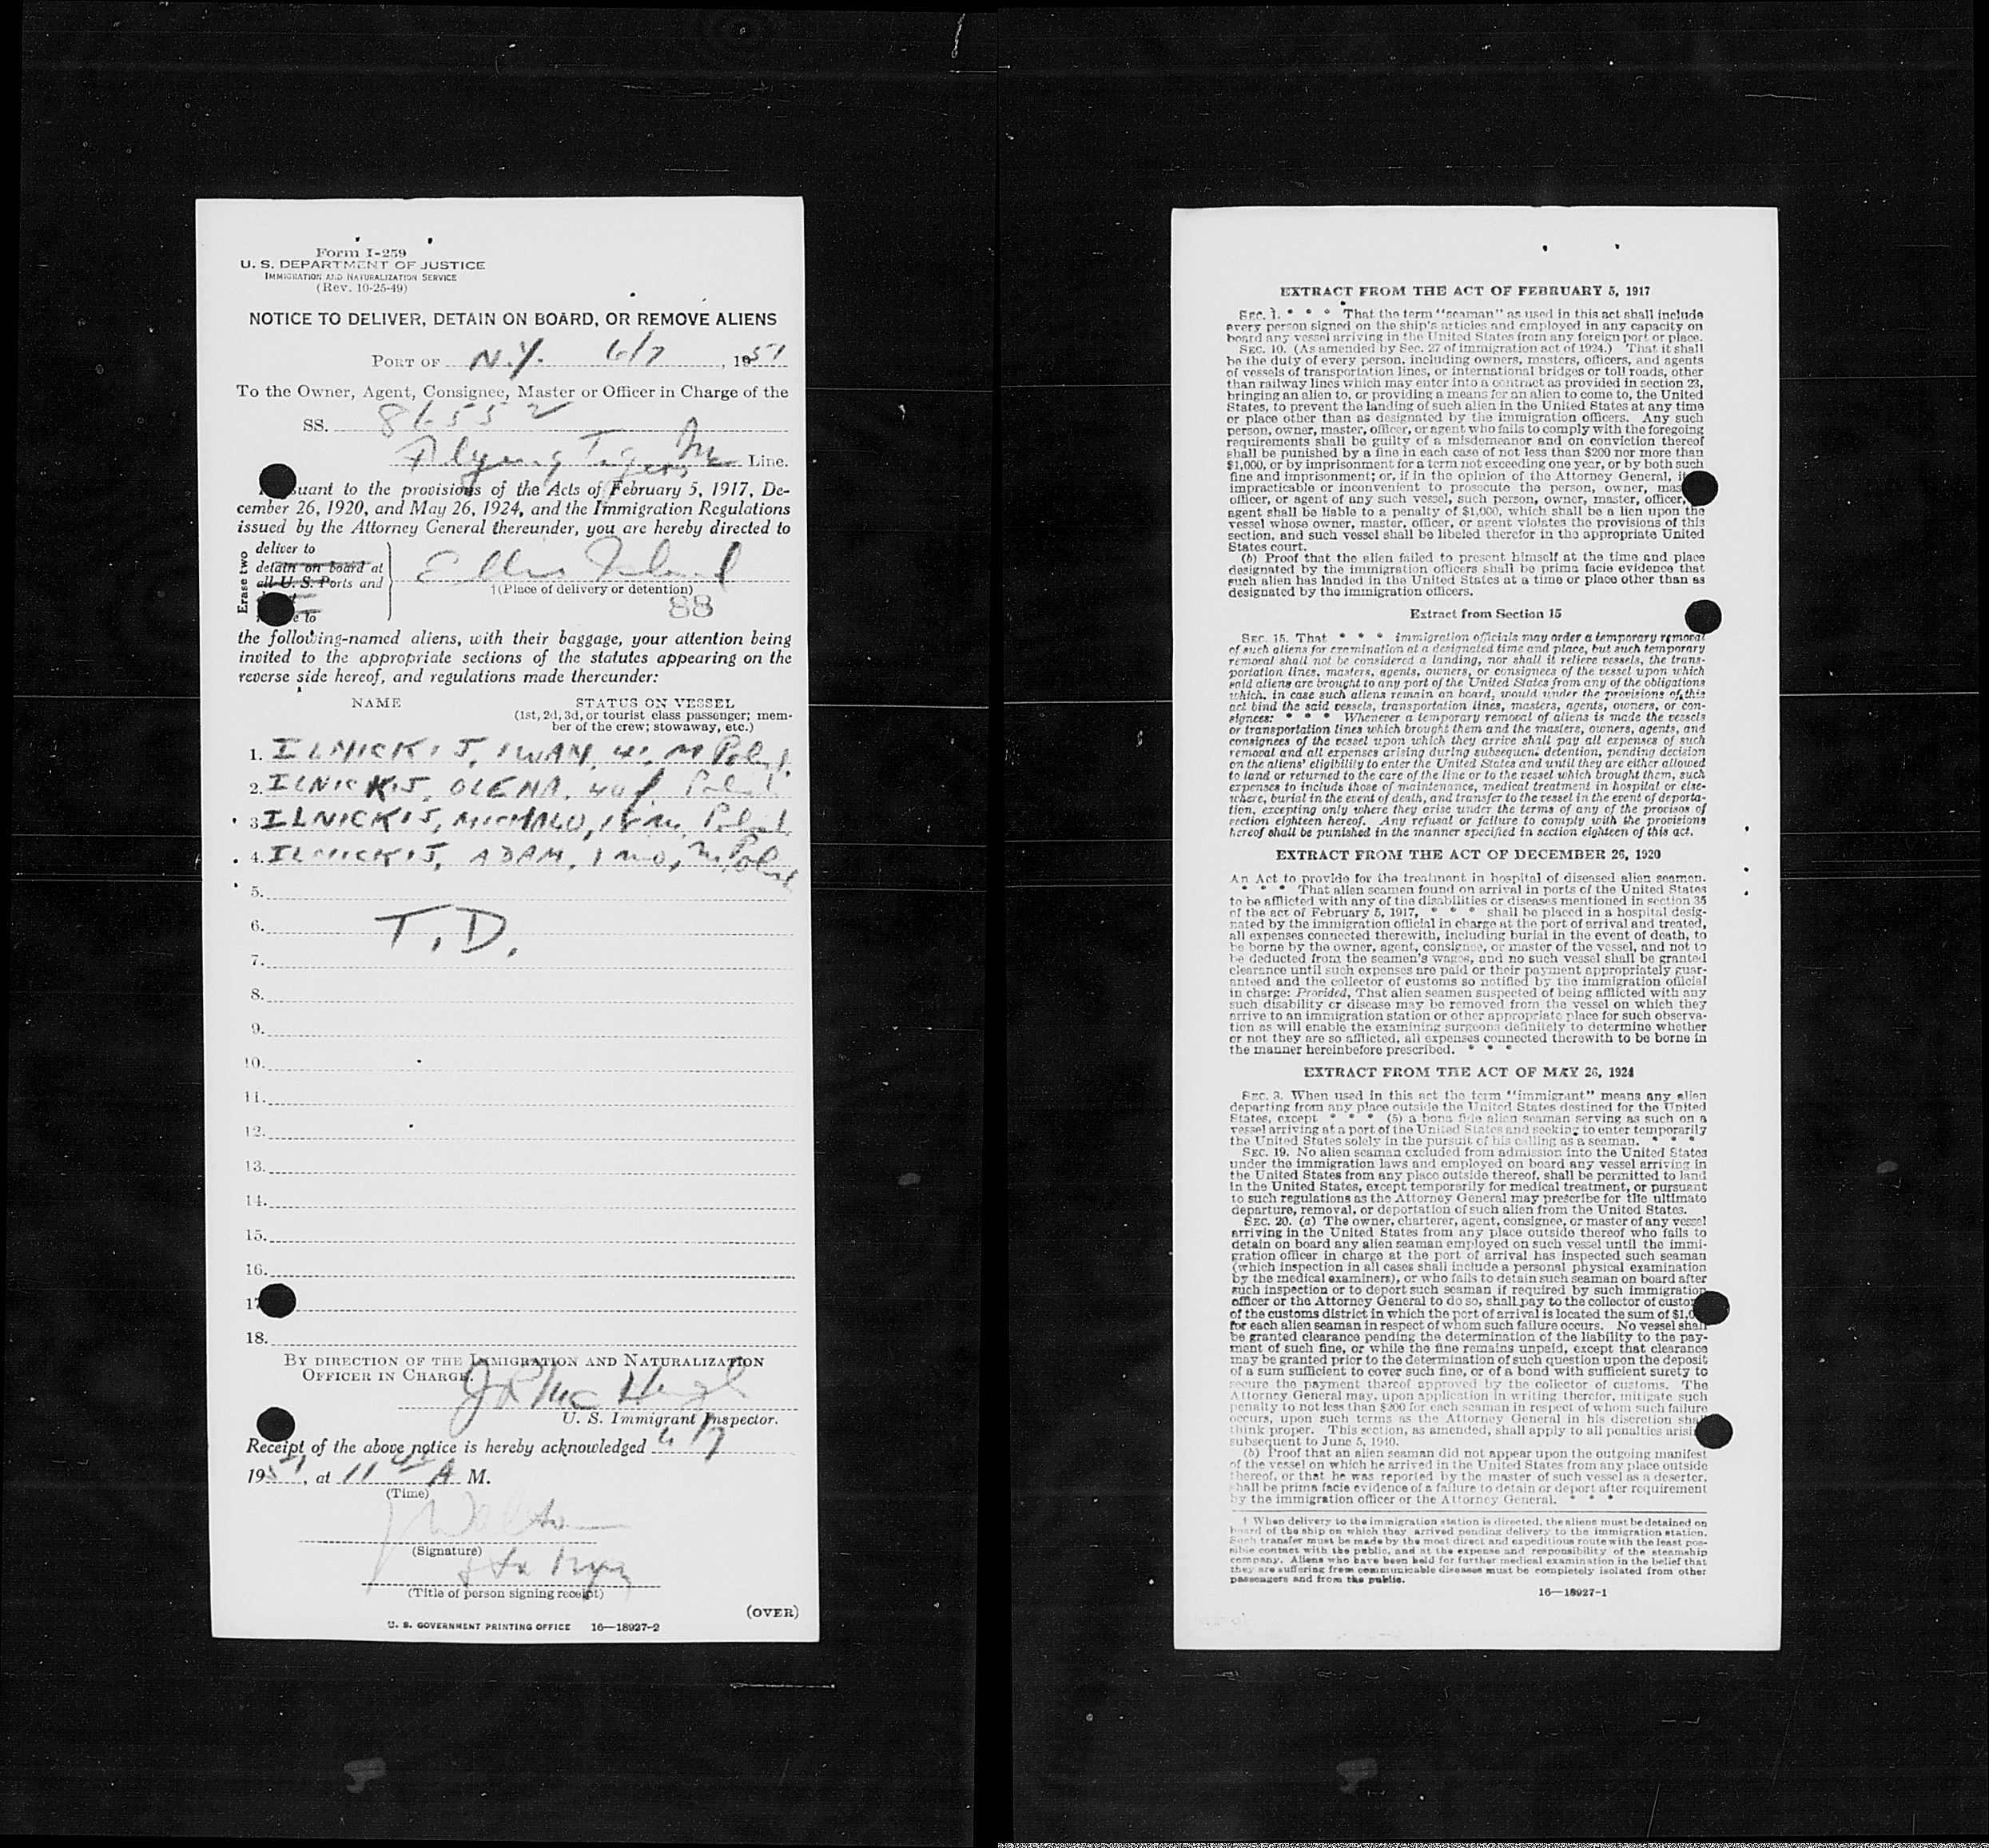 Form I-259
U. S. DEPARTMENT OF JUSTICE
IMMIGRATION AND NATURALIZATION SERVICE
(Rev. 10-25-49)
NOTICE TO DELIVER, DETAIN ON BOARD, OR REMOVE ALIENS
PORT OF N.Y. 6/7, 1951
To the Owner, Agent, Consignee, Master or Officer in Charge of the
SS. 86552
Flying Tigers Line.
suant to the provisions of the Acts of February 5, 1917, De-
cember 26, 1920, and May 26, 1924, and the Immigration Regulations
issued by the Attorney General thereunder, you are hereby directed to
Erase two
deliver to
detain on board at
all U. S. Ports and
e to
Ellis Island
†(Place of delivery or detention)
88
the following-named aliens, with their baggage, your attention being
invited to the appropriate sections of the statutes appearing on the
reverse side hereof, and regulations made thereunder:
NAME STATUS ON VESSEL
(1st, 2d, 3d, or tourist class passenger; mem-
ber of the crew; stowaway, etc.)
1. ILNICKIJ, IWAN, 41, M Polish
2. ILNICKIJ, OLENA, 40 f. Polish
3. ILNICKIJ, MICHAILO, M. Polish
4. ILNICKIJ, ADAM, 1 mo, M. Polish
5.
6. T.D.
7.
8.
9.
10.
11.
12.
13.
14.
15.
16.
17
18.
BY DIRECTION OF THE IMMIGRATION AND NATURALIZATION
OFFICER IN CHARGE.
J R McHugh
U. S. Immigrant Inspector.
Receipt of the above notice is hereby acknowledged 6/7
1951, at 11 45 A M.
(Time)
J Walton
(Signature)
Sta Mgr
(Title of person signing receipt)
(OVER)
U. S. GOVERNMENT PRINTING OFFICE 16—18927-2
EXTRACT FROM THE ACT OF FEBRUARY 5, 1917
SEC. 1. * * * That the term "seaman" as used in this act shall include
every person signed on the ship's articles and employed in any capacity on
board any vessel arriving in the United States from any foreign port or place.
SEC. 10. (As amended by Sec. 27 of immigration act of 1924.) That it shall
be the duty of every person, including owners, masters, officers, and agents
of vessels of transportation lines, or international bridges or toll roads, other
than railway lines which may enter into a contract as provided in section 23,
bringing an alien to, or providing a means for an alien to come to, the United
States, to prevent the landing of such alien in the United States at any time
or place other than as designated by the immigration officers. Any such
person, owner, master, officer, or agent who fails to comply with the foregoing
requirements shall be guilty of a misdemeanor and on conviction thereof
shall be punished by a fine in each case of not less than $200 nor more than
$1,000, or by imprisonment for a term not exceeding one year, or by both such
fine and imprisonment; or, if in the opinion of the Attorney General, it
impracticable or inconvenient to prosecute the person, owner, mas
officer, or agent of any such vessel, such person, owner, master, officer,
agent shall be liable to a penalty of $1,000, which shall be a lien upon the
vessel whose owner, master, officer, or agent violates the provisions of this
section, and such vessel shall be libeled therefor in the appropriate United
States court.
(b) Proof that the alien failed to present himself at the time and place
designated by the immigration officers shall be prima facie evidence that
such alien has landed in the United States at a time or place other than as
designated by the immigration officers.
Extract from Section 15
SEC. 15. That * * * immigration officials may order a temporary removal
of such aliens for examination at a designated time and place, but such temporary
removal shall not be considered a landing, nor shall it relieve vessels, the trans-
portation lines, masters, agents, owners, or consignees of the vessel upon which
said aliens are brought to any port of the United States from any of the obligations
which, in case such aliens remain on board, would under the provisions of this
act bind the said vessels, transportation lines, masters, agents, owners, or con-
signees: * * * Whenever a temporary removal of aliens is made the vessels
or transportation lines which brought them and the masters, owners, agents, and
consignees of the vessel upon which they arrive shall pay all expenses of such
removal and all expenses arising during subsequent detention, pending decision
on the aliens' eligibility to enter the United States and until they are either allowed
to land or returned to the care of the line or to the vessel which brought them, such
expenses to include those of maintenance, medical treatment in hospital or else-
where, burial in the event of death, and transfer to the vessel in the event of deporta-
tion, excepting only where they arise under the terms of any of the provisos of
section eighteen hereof. Any refusal or failure to comply with the provisions
hereof shall be punished in the manner specified in section eighteen of this act.
EXTRACT FROM THE ACT OF DECEMBER 26, 1920
An Act to provide for the treatment in hospital of diseased alien seamen.
* * * That alien seamen found on arrival in ports of the United States
to be afflicted with any of the disabilities or diseases mentioned in section 35
of the act of February 5, 1917, * * * shall be placed in a hospital desig-
nated by the immigration official in charge at the port of arrival and treated,
all expenses connected therewith, including burial in the event of death, to
be borne by the owner, agent, consignee, or master of the vessel, and not to
be deducted from the seamen's wages, and no such vessel shall be granted
clearance until such expenses are paid or their payment appropriately guar-
anteed and the collector of customs so notified by the immigration official
in charge: Provided, That alien seamen suspected of being afflicted with any
such disability or disease may be removed from the vessel on which they
arrive to an immigration station or other appropriate place for such observa-
tion as will enable the examining surgeons definitely to determine whether
or not they are so afflicted, all expenses connected therewith to be borne in
the manner hereinbefore prescribed. * * *
EXTRACT FROM THE ACT OF MAY 26, 1924
SEC. 3. When used in this act the term "immigrant" means any alien
departing from any place outside the United States destined for the United
States, except * * * (5) a bona fide alien seaman serving as such on a
vessel arriving at a port of the United States and seeking to enter temporarily
the United States solely in the pursuit of his calling as a seaman. * * *
SEC. 19. No alien seaman excluded from admission into the United States
under the immigration laws and employed on board any vessel arriving in
the United States from any place outside thereof, shall be permitted to land
in the United States, except temporarily for medical treatment, or pursuant
to such regulations as the Attorney General may prescribe for the ultimate
departure, removal, or deportation of such alien from the United States.
SEC. 20. (a) The owner, charterer, agent, consignee, or master of any vessel
arriving in the United States from any place outside thereof who fails to
detain on board any alien seaman employed on such vessel until the immi-
gration officer in charge at the port of arrival has inspected such seaman
(which inspection in all cases shall include a personal physical examination
by the medical examiners), or who fails to detain such seaman on board after
such inspection or to deport such seaman if required by such immigration
officer or the Attorney General to do so, shall pay to the collector of custom
of the customs district in which the port of arrival is located the sum of $1,0
for each alien seaman in respect of whom such failure occurs. No vessel shall
be granted clearance pending the determination of the liability to the pay-
ment of such fine, or while the fine remains unpaid, except that clearance
may be granted prior to the determination of such question upon the deposit
of a sum sufficient to cover such fine, or of a bond with sufficient surety to
secure the payment thereof approved by the collector of customs. The
Attorney General may, upon application in writing therefor, mitigate such
penalty to not less than $200 for each seaman in respect of whom such failure
occurs, upon such terms as the Attorney General in his discretion shall
think proper. This section, as amended, shall apply to all penalties arisi
subsequent to June 5, 1940.
(b) Proof that an alien seaman did not appear upon the outgoing manifest
of the vessel on which he arrived in the United States from any place outside
thereof, or that he was reported by the master of such vessel as a deserter,
shall be prima facie evidence of a failure to detain or deport after requirement
by the immigration officer or the Attorney General. * * *
† When delivery to the immigration station is directed, the aliens must be detained on
board of the ship on which they arrived pending delivery to the immigration station.
Such transfer must be made by the most direct and expeditious route with the least pos-
sible contact with the public, and at the expense and responsibility of the steamship
company. Aliens who have been held for further medical examination in the belief that
they are suffering from communicable diseases must be completely isolated from other
passengers and from the public.
16—18927-1